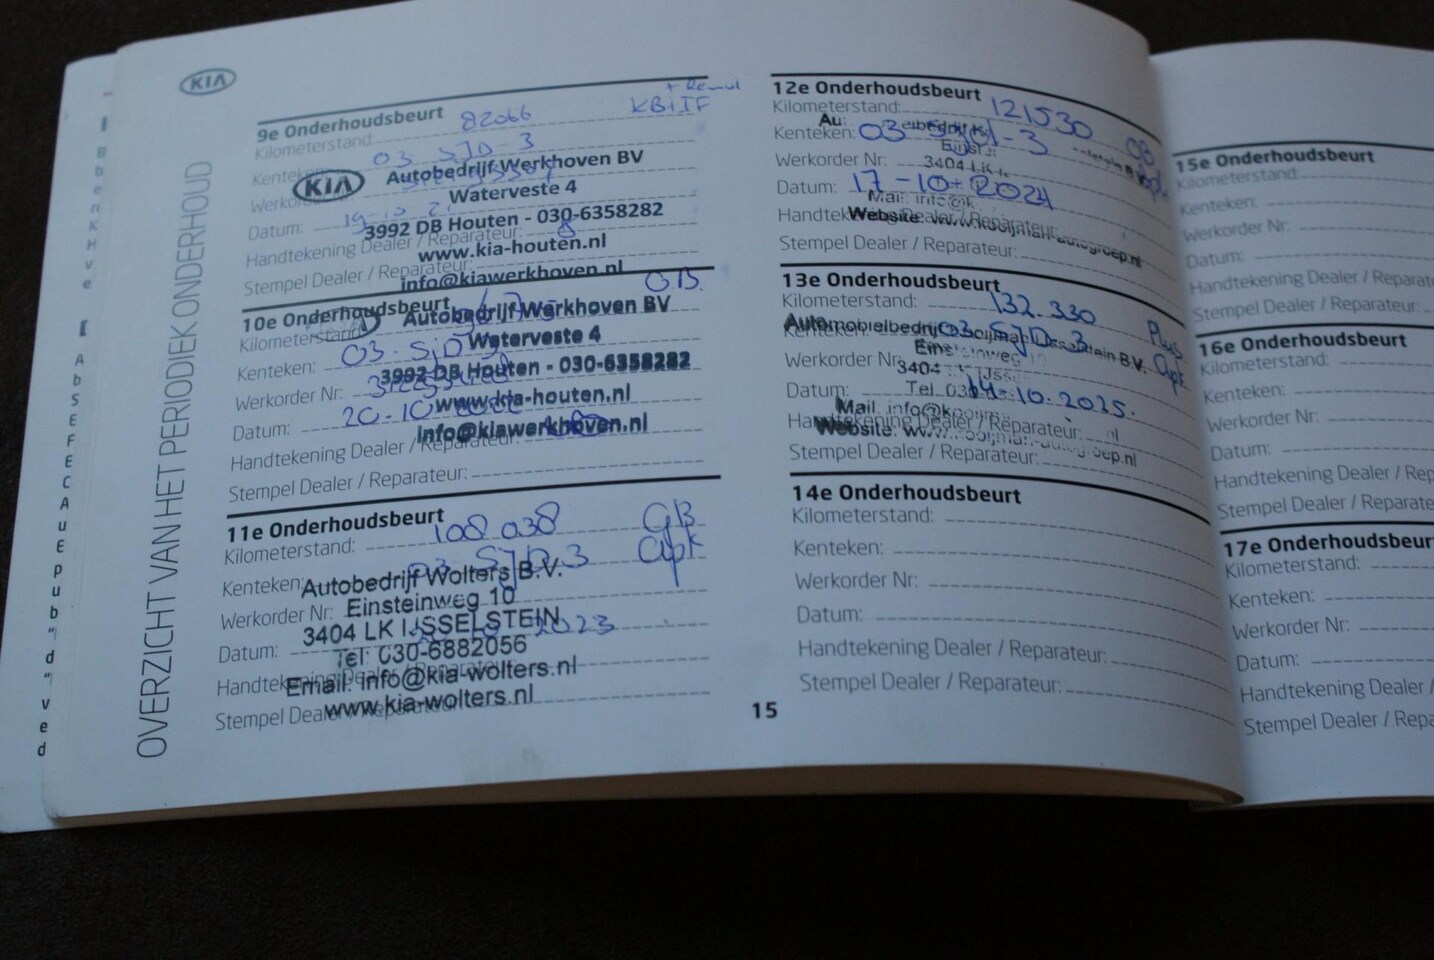 KIA
OVERZICHT VAN HET PERIODIEK ONDERHOUD
9e Onderhoudsbeurt
+ Remvl
KB+IF
Kilometerstand: 82066
Kenteken: 03 SJD-3
Werkorder
Datum: 19-10-21
Handtekening Dealer / Reparateur:
Stempel Dealer / Reparateur:
KIA
Autobedrijf Werkhoven BV
Waterveste 4
3992 DB Houten - 030-6358282
www.kia-houten.nl
info@kiawerkhoven.nl
10e Onderhoudsbeurt
Kilometerstand
Kenteken: 03-SJD-3
Werkorder Nr:
Datum: 20-10
Handtekening Dealer / Reparateur:
Stempel Dealer / Reparateur:
Autobedrijf Werkhoven BV
Waterveste 4
3992 DB Houten - 030-6358282
www.kia-houten.nl
info@kiawerkhoven.nl
11e Onderhoudsbeurt
Kilometerstand: 108 038
GB
apk
Kenteken: 03-SJD-3
Werkorder Nr:
Datum: 2023
Handtekening Dealer / Reparateur
Stempel Dealer / Reparateur
Autobedrijf Wolters B.V.
Einsteinweg 10
3404 LK IJSSELSTEIN
Tel: 030-6882056
Email: info@kia-wolters.nl
www.kia-wolters.nl
12e Onderhoudsbeurt
Kilometerstand: 121530
Kenteken: 03-SJD-3
Werkorder Nr:
Datum: 17-10-2024
Handtekening Dealer / Reparateur:
Stempel Dealer / Reparateur:
3404 LK
Mail: info@k
Website: www.kooijman-autogroep.nl
13e Onderhoudsbeurt
Kilometerstand: 132.330
Plus
apk
Kenteken: 03-SJD-3
Werkorder Nr
Datum: 14-10-2025.
Handtekening Dealer / Reparateur:
Stempel Dealer / Reparateur:
Automobielbedrijf Kooijman IJsselstein BV.
Einsteinweg
3404
Tel. 030
Mail: info@kooijm
Website: www.kooijman-autogroep.nl
14e Onderhoudsbeurt
Kilometerstand:
Kenteken:
Werkorder Nr:
Datum:
Handtekening Dealer / Reparateur:
Stempel Dealer / Reparateur:
15
15e Onderhoudsbeurt
Kilometerstand:
Kenteken:
Werkorder Nr:
Datum:
Handtekening Dealer / Repara
Stempel Dealer / Reparateur:
16e Onderhoudsbeurt
Kilometerstand:
Kenteken:
Werkorder Nr:
Datum:
Handtekening Dealer / Rep
Stempel Dealer / Reparateu
17e Onderhoudsbeur
Kilometerstand:
Kenteken:
Werkorder Nr:
Datum:
Handtekening Dealer /
Stempel Dealer / Repara